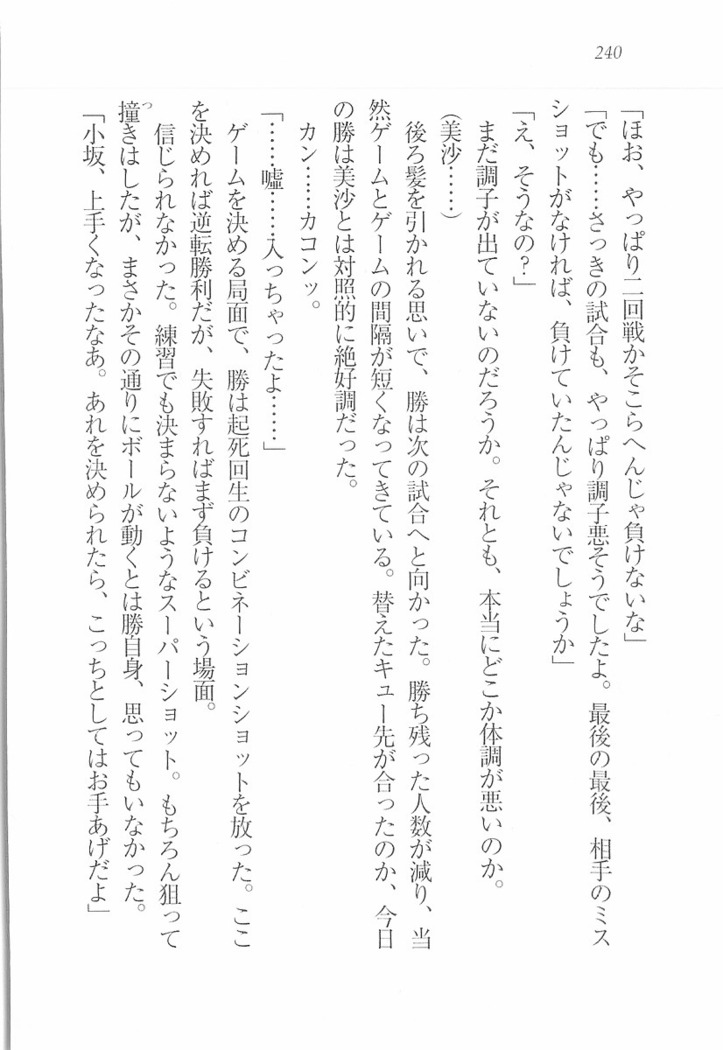 240
「ほお、やっぱり二回戦かそこらへんじゃ負けないな」
「でも……さっきの試合も、やっぱり調子悪そうでしたよ。最後の最後、相手のミス
ショットがなければ、負けていたんじゃないでしょうか」
「え、そうなの？」
まだ調子が出ていないのだろうか。それとも、本当にどこか体調が悪いのか。
(美沙……)
後ろ髪を引かれる思いで、勝は次の試合へと向かった。勝ち残った人数が減り、当
然ゲームとゲームの間隔が短くなってきている。替えたキュー先が合ったのか、今日
の勝は美沙とは対照的に絶好調だった。
カン……カコンッ。
「……嘘……入っちゃったよ……」
ゲームを決める局面で、勝は起死回生のコンビネーションショットを放った。ここ
を決めれば逆転勝利だが、失敗すればまず負けるという場面。
信じられなかった。練習でも決まらないようなスーパーショット。もちろん狙って
撞きはしたが、まさかその通りにボールが動くとは勝自身、思ってもいなかった。
「小坂、上手くなったなあ。あれを決められたら、こっちとしてはお手あげだよ」